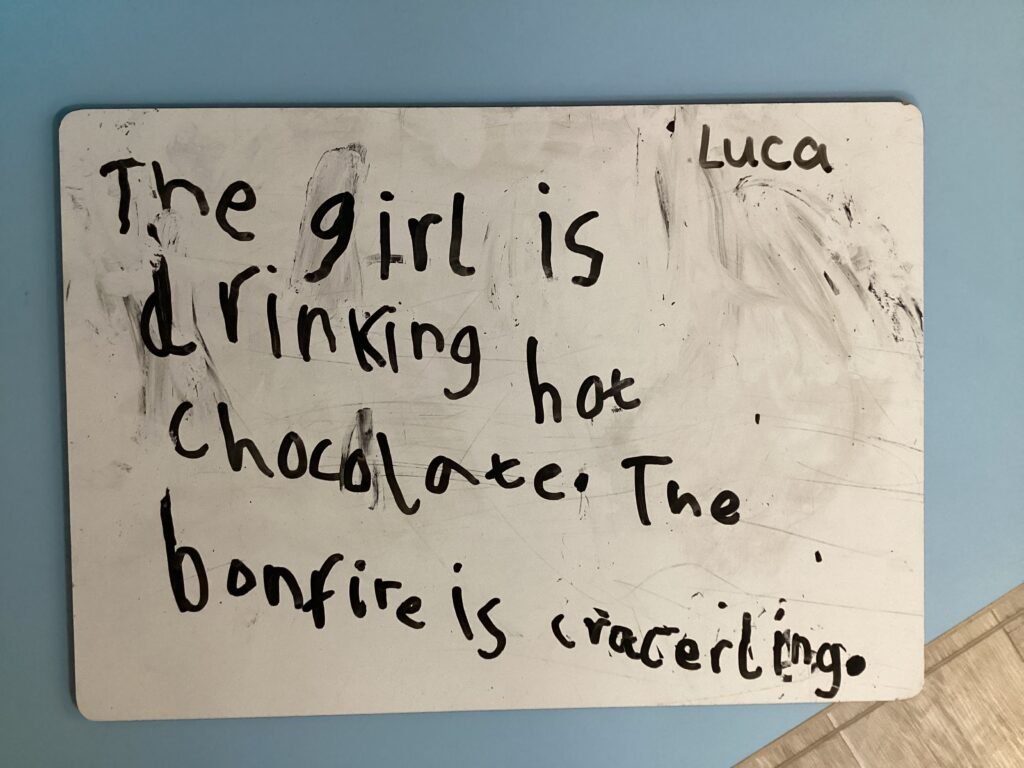 Luca
The girl is
drinking hot
chocolate. The
bonfire is cracerling.